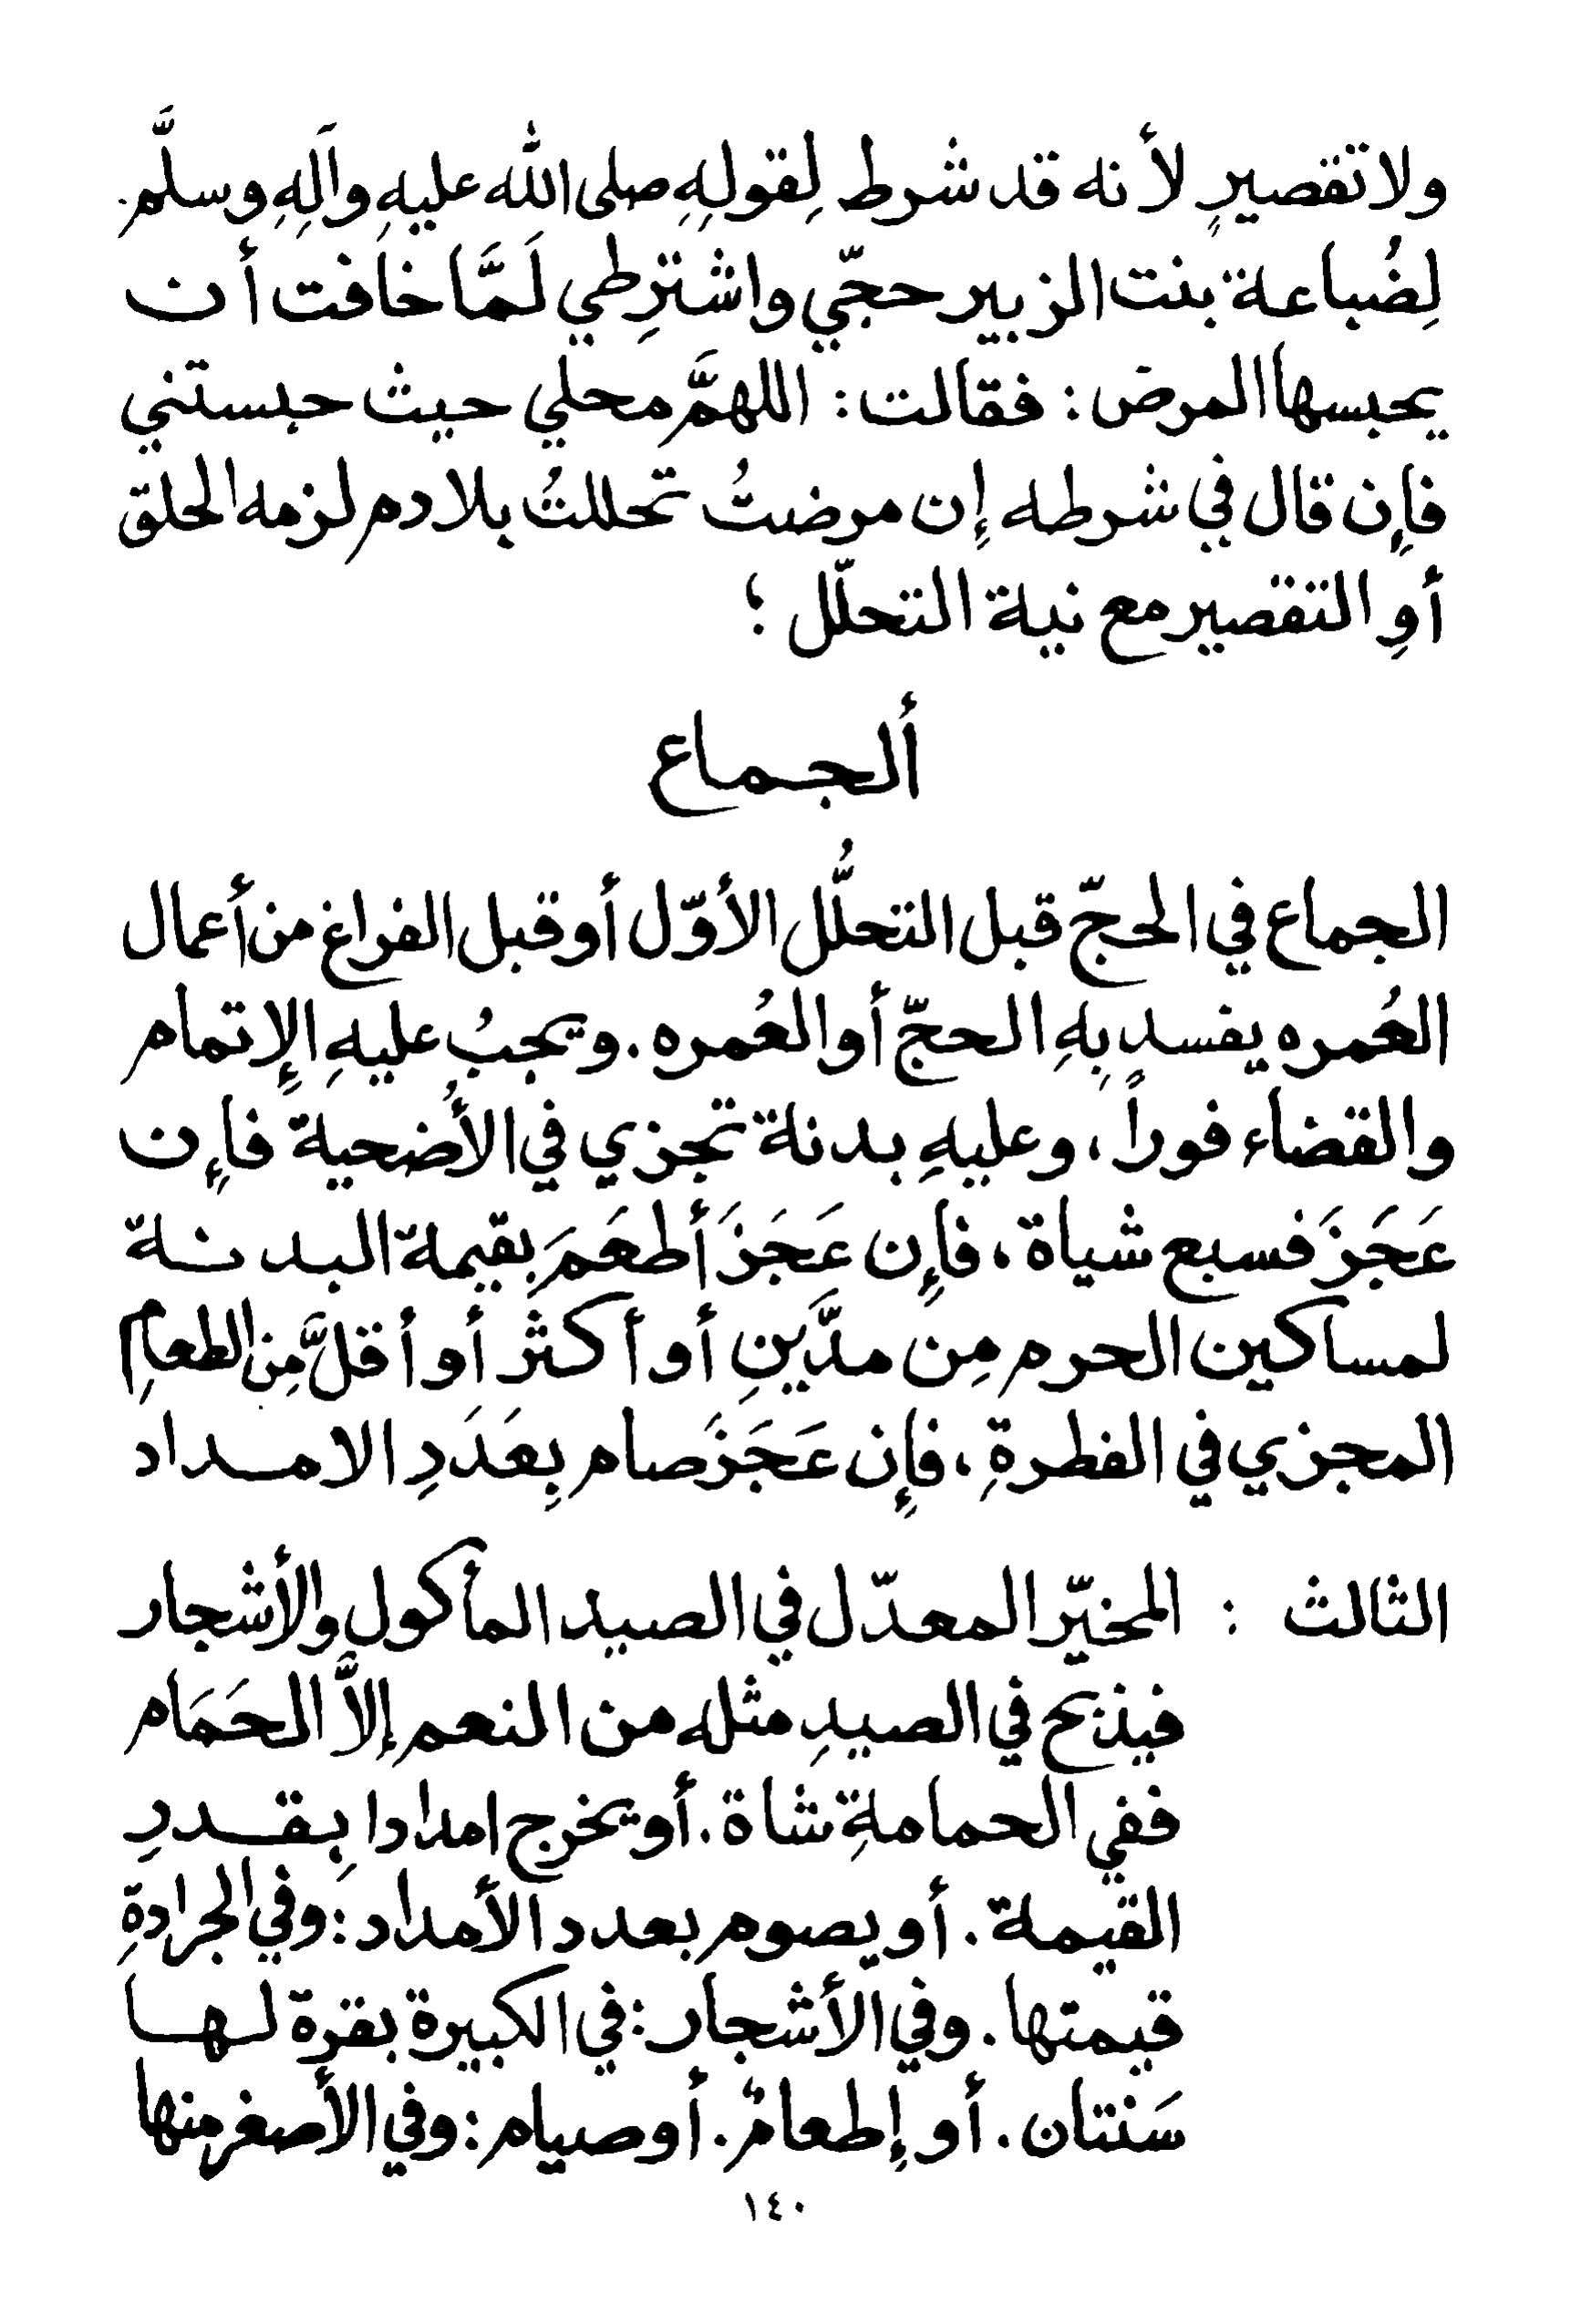 ولا تقصيرٍ لأنه قد شرط لِقولِهِ صلى الله عليهِ وآلِهِ وسلَّم.
لِضُباعة بنت الزبير حجّي واشترِطي لَمَّا خافت أن
يحبسها المرض : فقالت : اللهمَّ محلي حيث حبستني
فإن قال في شرطه إن مرضتُ تحللتُ بلا دم لزمه الحلق
أوِ التقصير مع نية التحلّل ؛
ألجماع
الجماع في الحجّ قبل التحلُّل الأوّل أو قبل الفراغ من أعمال
العُمره يفسد بِهِ الحجّ أو العُمره . ويجبُ عليهِ الإتمام
والقضاء فوراً ، وعليهِ بدنة تجزي في الأُضحية فإن
عَجَزَ فسبع شياة ، فإن عَجَزَ أطعَمَ بقيمة البدنة
لمساكين الحرم مِن مدَّينِ أو أكثر أو أقلَّ مِن الطعامِ
المجزي في الفطرةِ ، فإن عَجَزَ صام بِعَدَدِ الامداد
الثالث : المخيّر المعدّل في الصيد المأكول والأشجار
فيذبح في الصيدِ مثله من النعم إلاَّ الحَمَام
ففي الحمامةِ شاة . أو يخرج امدادا بِقدرِ
القيمة . أو يصوم بعدد الأمداد : وفي الجرادةِ
قيمتها . وفي الأشجار : في الكبيرة بقرة لها
سَنتان . أو إطعامٌ . أو صيام : وفي الأصغر منها
١٤٠